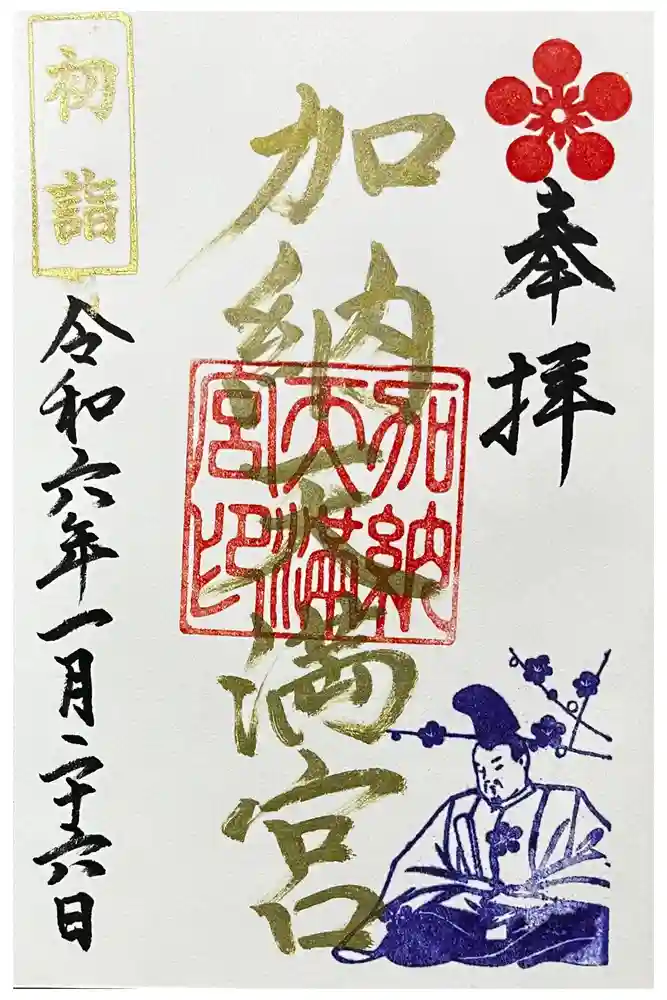 奉拝
加納天満宮
加納
天満
宮印
初詣
令和六年一月二十六日